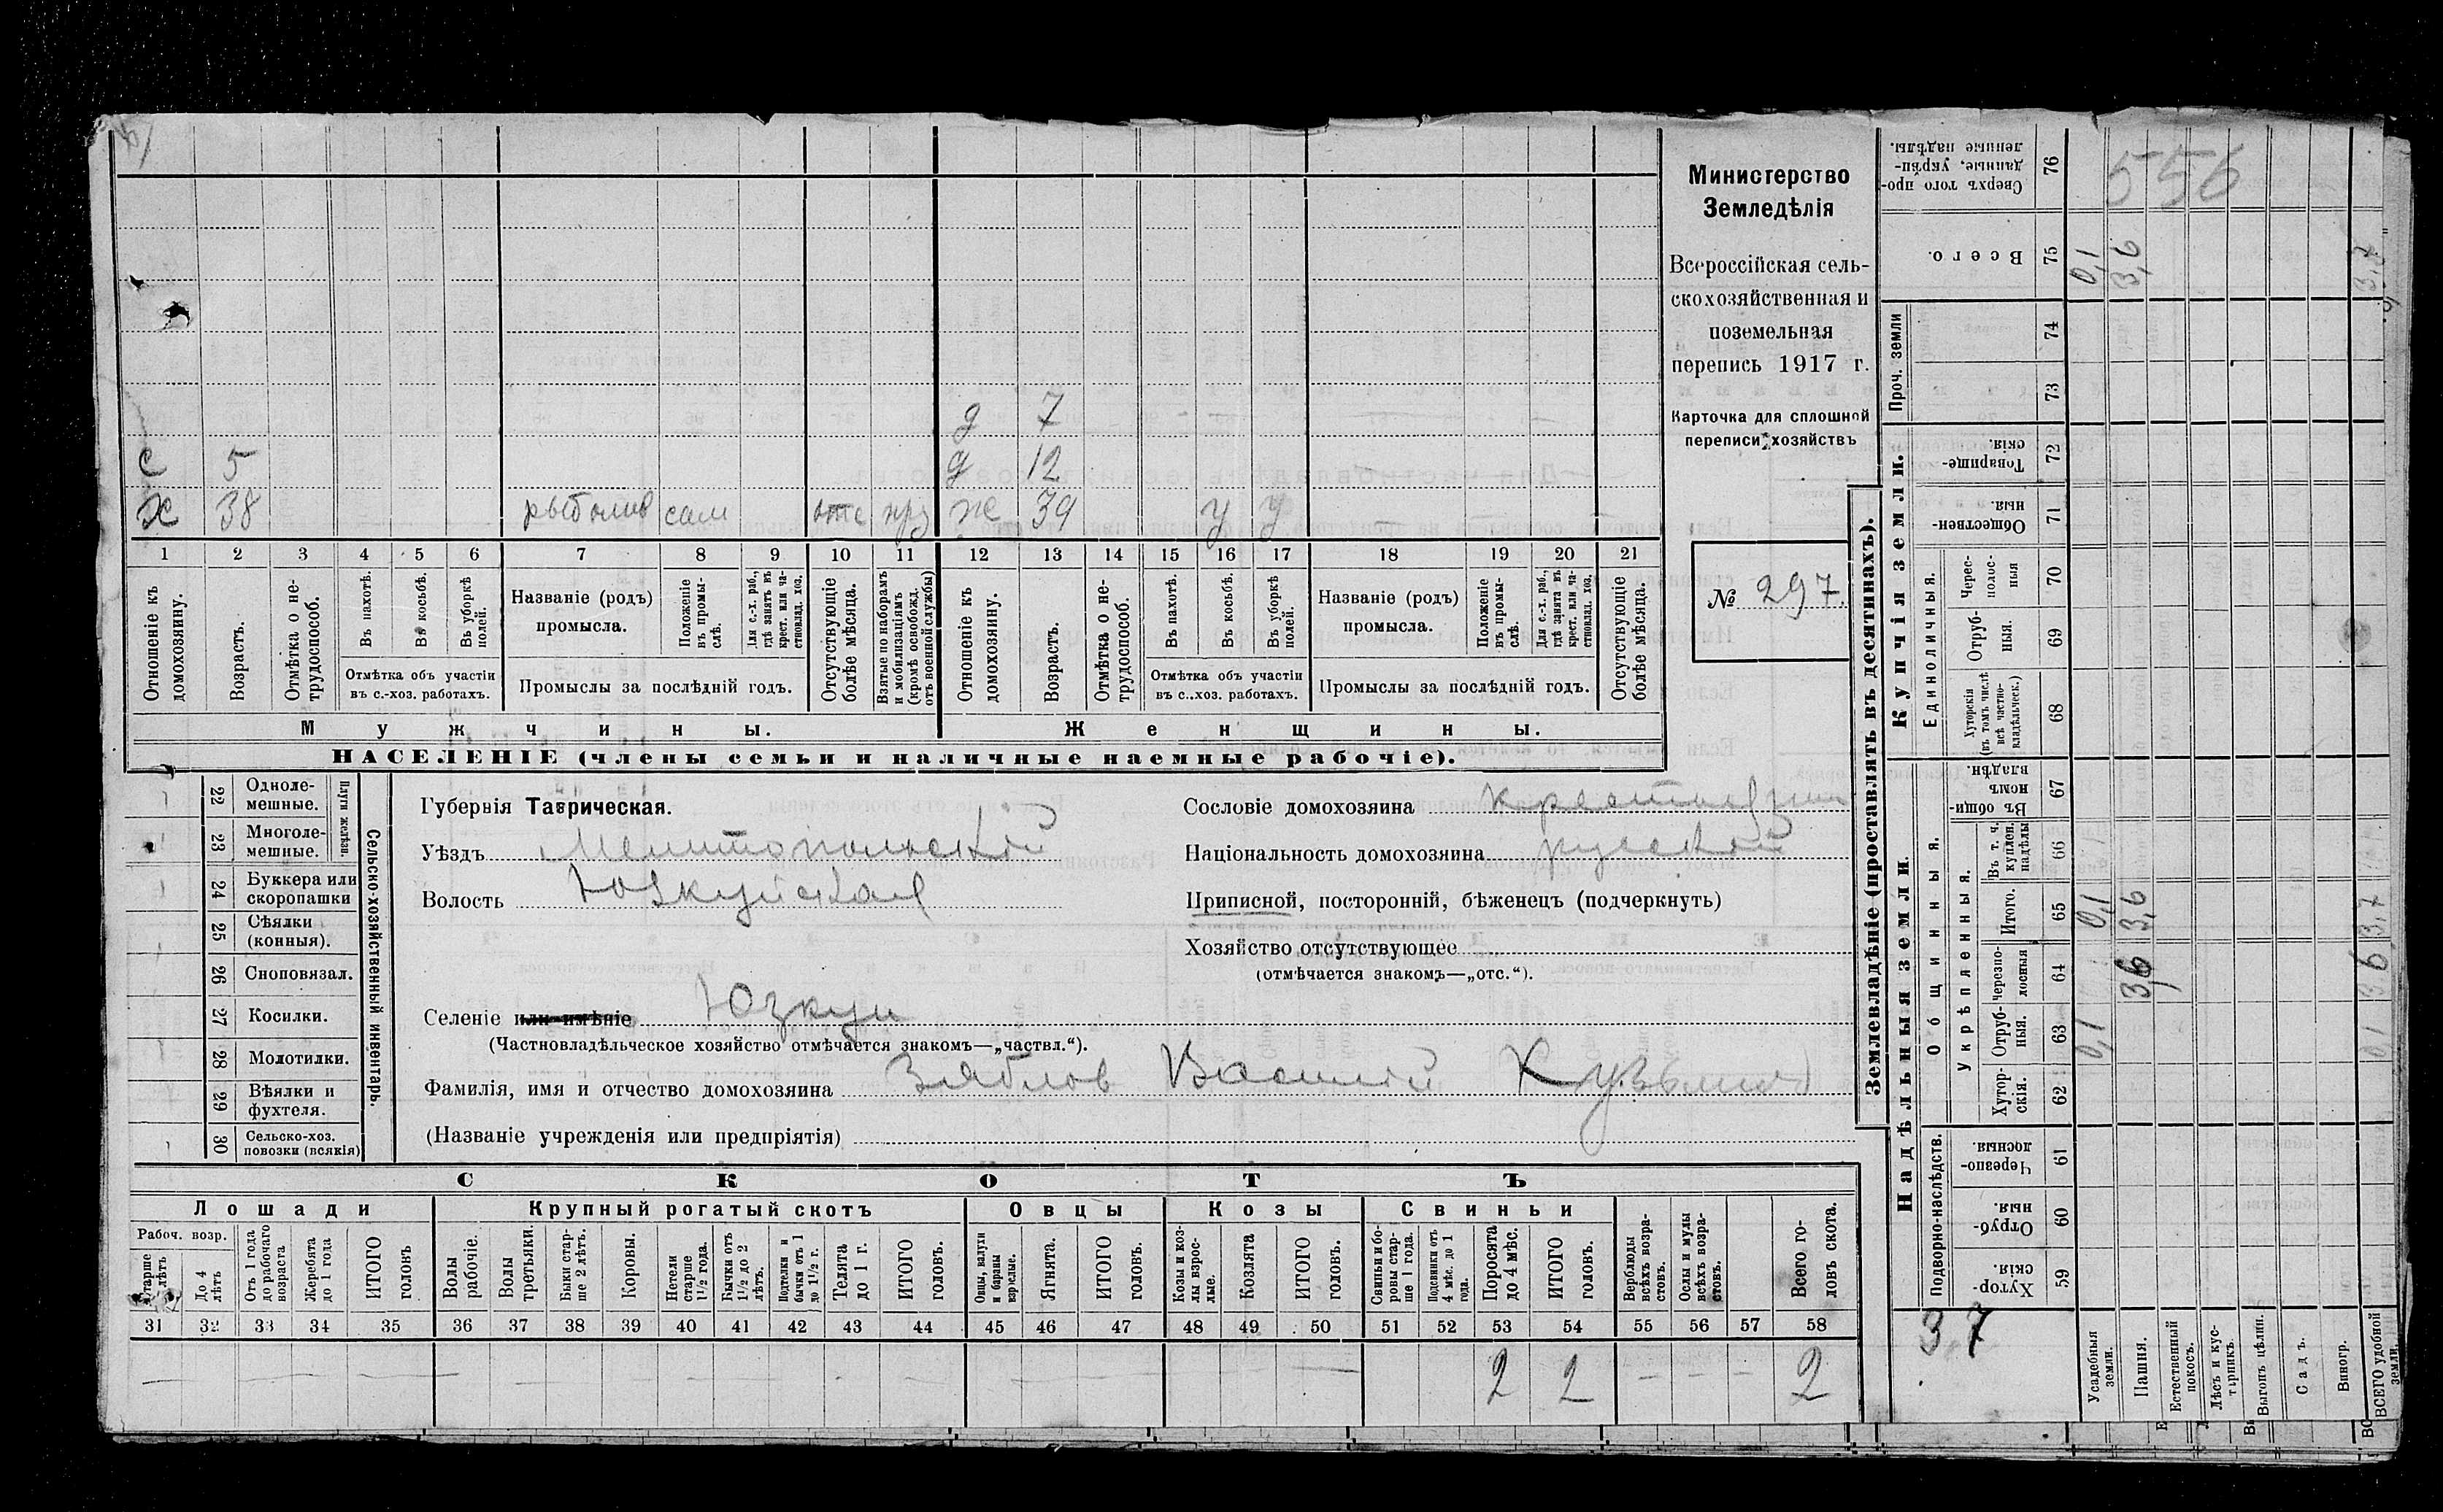 556
Министерство
Земледѣлія
Всероссійская сель-
скохозяйственная и
поземельная
перепись 1917 г.
Карточка для сплошной
переписи хозяйствъ
№ 297.
д 7
с 5 д 12
х 38 рыболов сам отс ж 39 у у
1 2 3 4 5 6 7 8 9 10 11 12 13 14 15 16 17 18 19 20 21
Отношеніе къ домохозяину.
Возрастъ.
Отмѣтка о не-трудоспособ.
Въ пахотѣ.
Въ косьбѣ.
Въ уборкѣ полей.
Отмѣтка объ участіи
въ с.-хоз. работахъ.
Названіе (родъ)
промысла.
Положеніе въ промы-слѣ.
Для с.-х. раб., гдѣ занятъ въ крест. или ча-стновлад. хоз.
Промыслы за послѣдній годъ.
Отсутствующіе болѣе мѣсяца.
Взятые по наборамъ и мобилизаціямъ (кромѣ освобожд. отъ военной службы)
Отношеніе къ домохозяину.
Возрастъ.
Отмѣтка о не-трудоспособ.
Въ пахотѣ.
Въ косьбѣ.
Въ уборкѣ полей.
Отмѣтка объ участіи
въ с.-хоз. работахъ.
Названіе (родъ)
промысла.
Положеніе въ промы-слѣ.
Для с.-х. раб., гдѣ занята въ крест. или ча-стновлад. хоз.
Промыслы за послѣдній годъ.
Отсутствующіе болѣе мѣсяца.
Мужчины. Женщины.
НАСЕЛЕНІЕ (члены семьи и наличные наемные рабочіе).
Сельско-хозяйственный инвентарь.
Плуги желѣзн.
22 Одноле-мешные.
23 Многоле-мешные.
24 Буккера или скоропашки
25 Сѣялки (конныя).
26 Сноповязал.
27 Косилки.
28 Молотилки.
29 Вѣялки и фухтеля.
30 Сельско-хоз. повозки (всякія)
Губернія Таврическая.
Уѣздъ Мелитопольскій
Волость Юзкуйская
Селеніе или имѣніе Юзкуи
(Частновладѣльческое хозяйство отмѣчается знакомъ—„частвл.“).
Фамилія, имя и отчество домохозяина Зяблов Василій Кузьмич
(Названіе учрежденія или предпріятія)
Сословіе домохозяина крестьянин
Національность домохозяина русскій
Приписной, посторонній, бѣженецъ (подчеркнуть)
Хозяйство отсутствующее
(отмѣчается знакомъ—„отс.“).
СКОТЪ
Лошади Крупный рогатый скотъ Овцы Козы Свиньи
Рабоч. возр.
Старше 4 лѣтъ
До 4 лѣтъ
Отъ 1 года до рабочаго возраста
Жеребята до 1 года
ИТОГО головъ
Волы рабочіе.
Волы третьяки.
Быки стар-ше 2 лѣтъ.
Коровы.
Нетели старше 1½ года.
Бычки отъ 1½ до 2 лѣтъ.
Подтелки и бычки отъ 1 до 1½ г.
Телята до 1 г.
ИТОГО головъ.
Овцы, валухи и бараны взрослые.
Ягнята.
ИТОГО головъ.
Козы и коз-лы взрос-лые.
Козлята
ИТОГО головъ.
Свиньи и бо-ровы стар-ше 1 года.
Подсвинки отъ 4 мѣс. до 1 года.
Поросята до 4 мѣс.
ИТОГО головъ.
Верблюды всѣхъ возра-стовъ.
Ослы и мулы всѣхъ возра-стовъ.
Всего го-ловъ скота.
31 32 33 34 35 36 37 38 39 40 41 42 43 44 45 46 47 48 49 50 51 52 53 54 55 56 57 58
2 2 2
Землевладѣніе (проставлять въ десятинахъ).
Купчія земли.
Надѣльныя земли.
76 Сверхъ того про-данные, укрѣп-ленные надѣлы.
75 Всего. 0,1 3,6 3,7
Проч. земли
74
73
72 Товарище-скія.
71 Обществен-ныя.
Единоличныя.
70 Черес-полос-ныя
69 Отруб-ныя.
68 Хуторскія (въ томъ числѣ всѣ частно-владѣльческ.)
Общинныя.
67 Въ общи-номъ владѣн.
Укрѣпленныя.
66 Въ т. ч. куплен. надѣлы
65 Итого. 0,1 3,6 3,7
64 черезпо-лосныя 3,6 3,6
63 Отруб-ныя. 0,1 0,1
62 Хутор-скія.
Подворно-наслѣдств.
61 Черезпо-лосныя
60 Отруб-ныя.
59 Хутор-скія.
3,7
Усадебныя земли.
Пашня.
Естественный покосъ.
Лѣсъ и кус-тарникъ.
Выгонъ цѣлин.
Садъ.
Виногр.
ВСЕГО удобной земли.